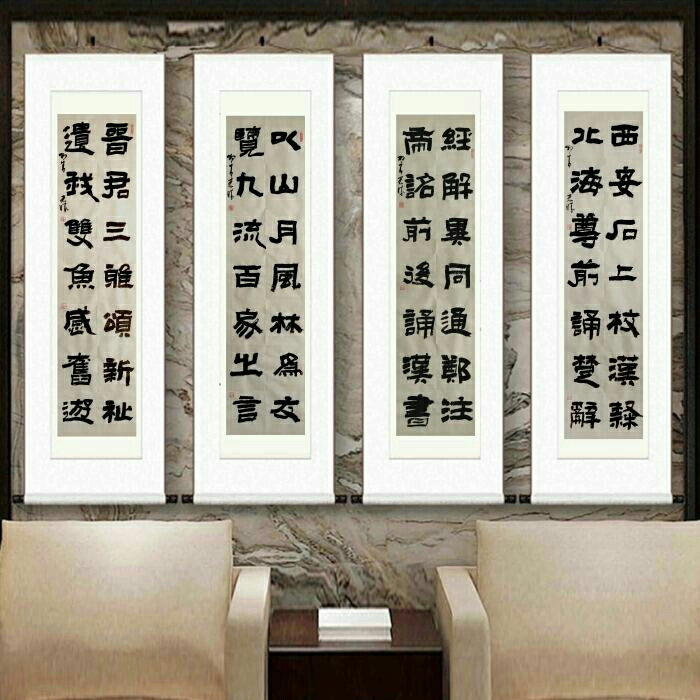 西安石上校漢隸
北海尊前誦楚辭
經解異同通鄭注
銘前後誦漢書
以山月風林為友
覽九流百家之言
晉君三雅頌新祉
遺我雙魚感舊遊